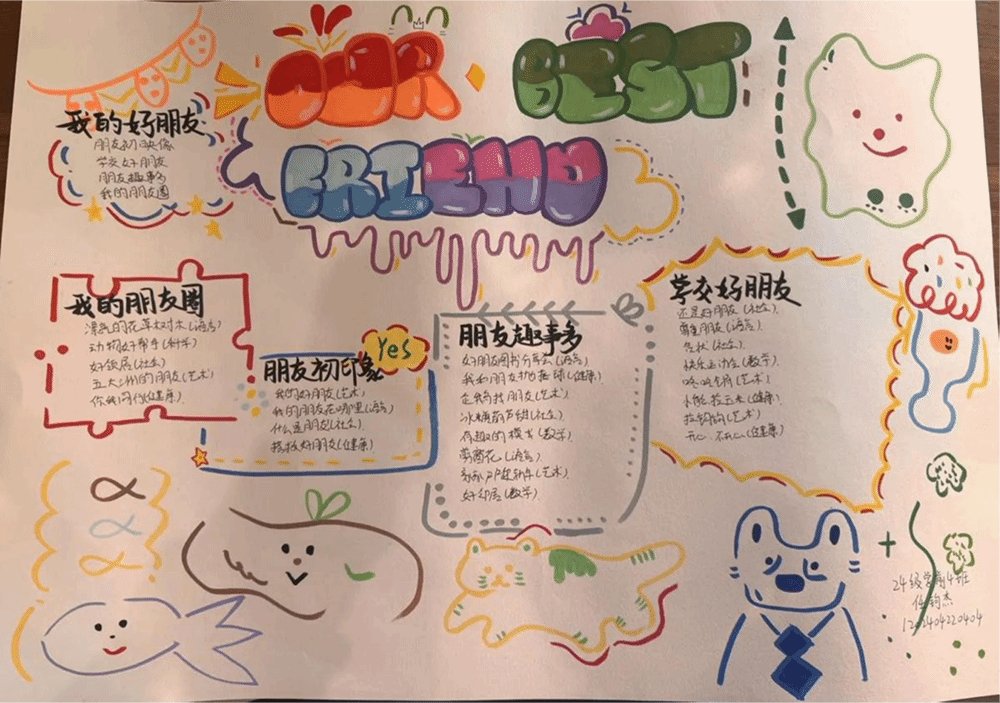 OUR
BEST
FRIEND
我的好朋友
朋友初映像
学交好朋友
朋友趣事多
我的朋友圈
我的朋友圈
漂亮的花草树木(语言)
动物好帮手(科学)
好邻居(社会)
五大洲的朋友(艺术)
你我同行(健康)
Yes
朋友初印象
我的好朋友(艺术)
我的朋友在哪里(语言)
什么是朋友(社会)
搭搭好朋友(健康)
朋友趣事多
好朋友图书分享会(语言)
我和朋友拍藤球(健康)
企鹅寻找朋友(艺术)
冰糖葫芦甜(社会)
有趣的模书(数学)
窗花(语言)
(艺术)
好邻居(数学)
学交好朋友
还是好朋友(社会)
尊重朋友(语言)
告状(社会)
快乐运动会(数学)
(艺术)
(健康)
拉钩钩(艺术)
开心不开心(健康)
24级学前4班